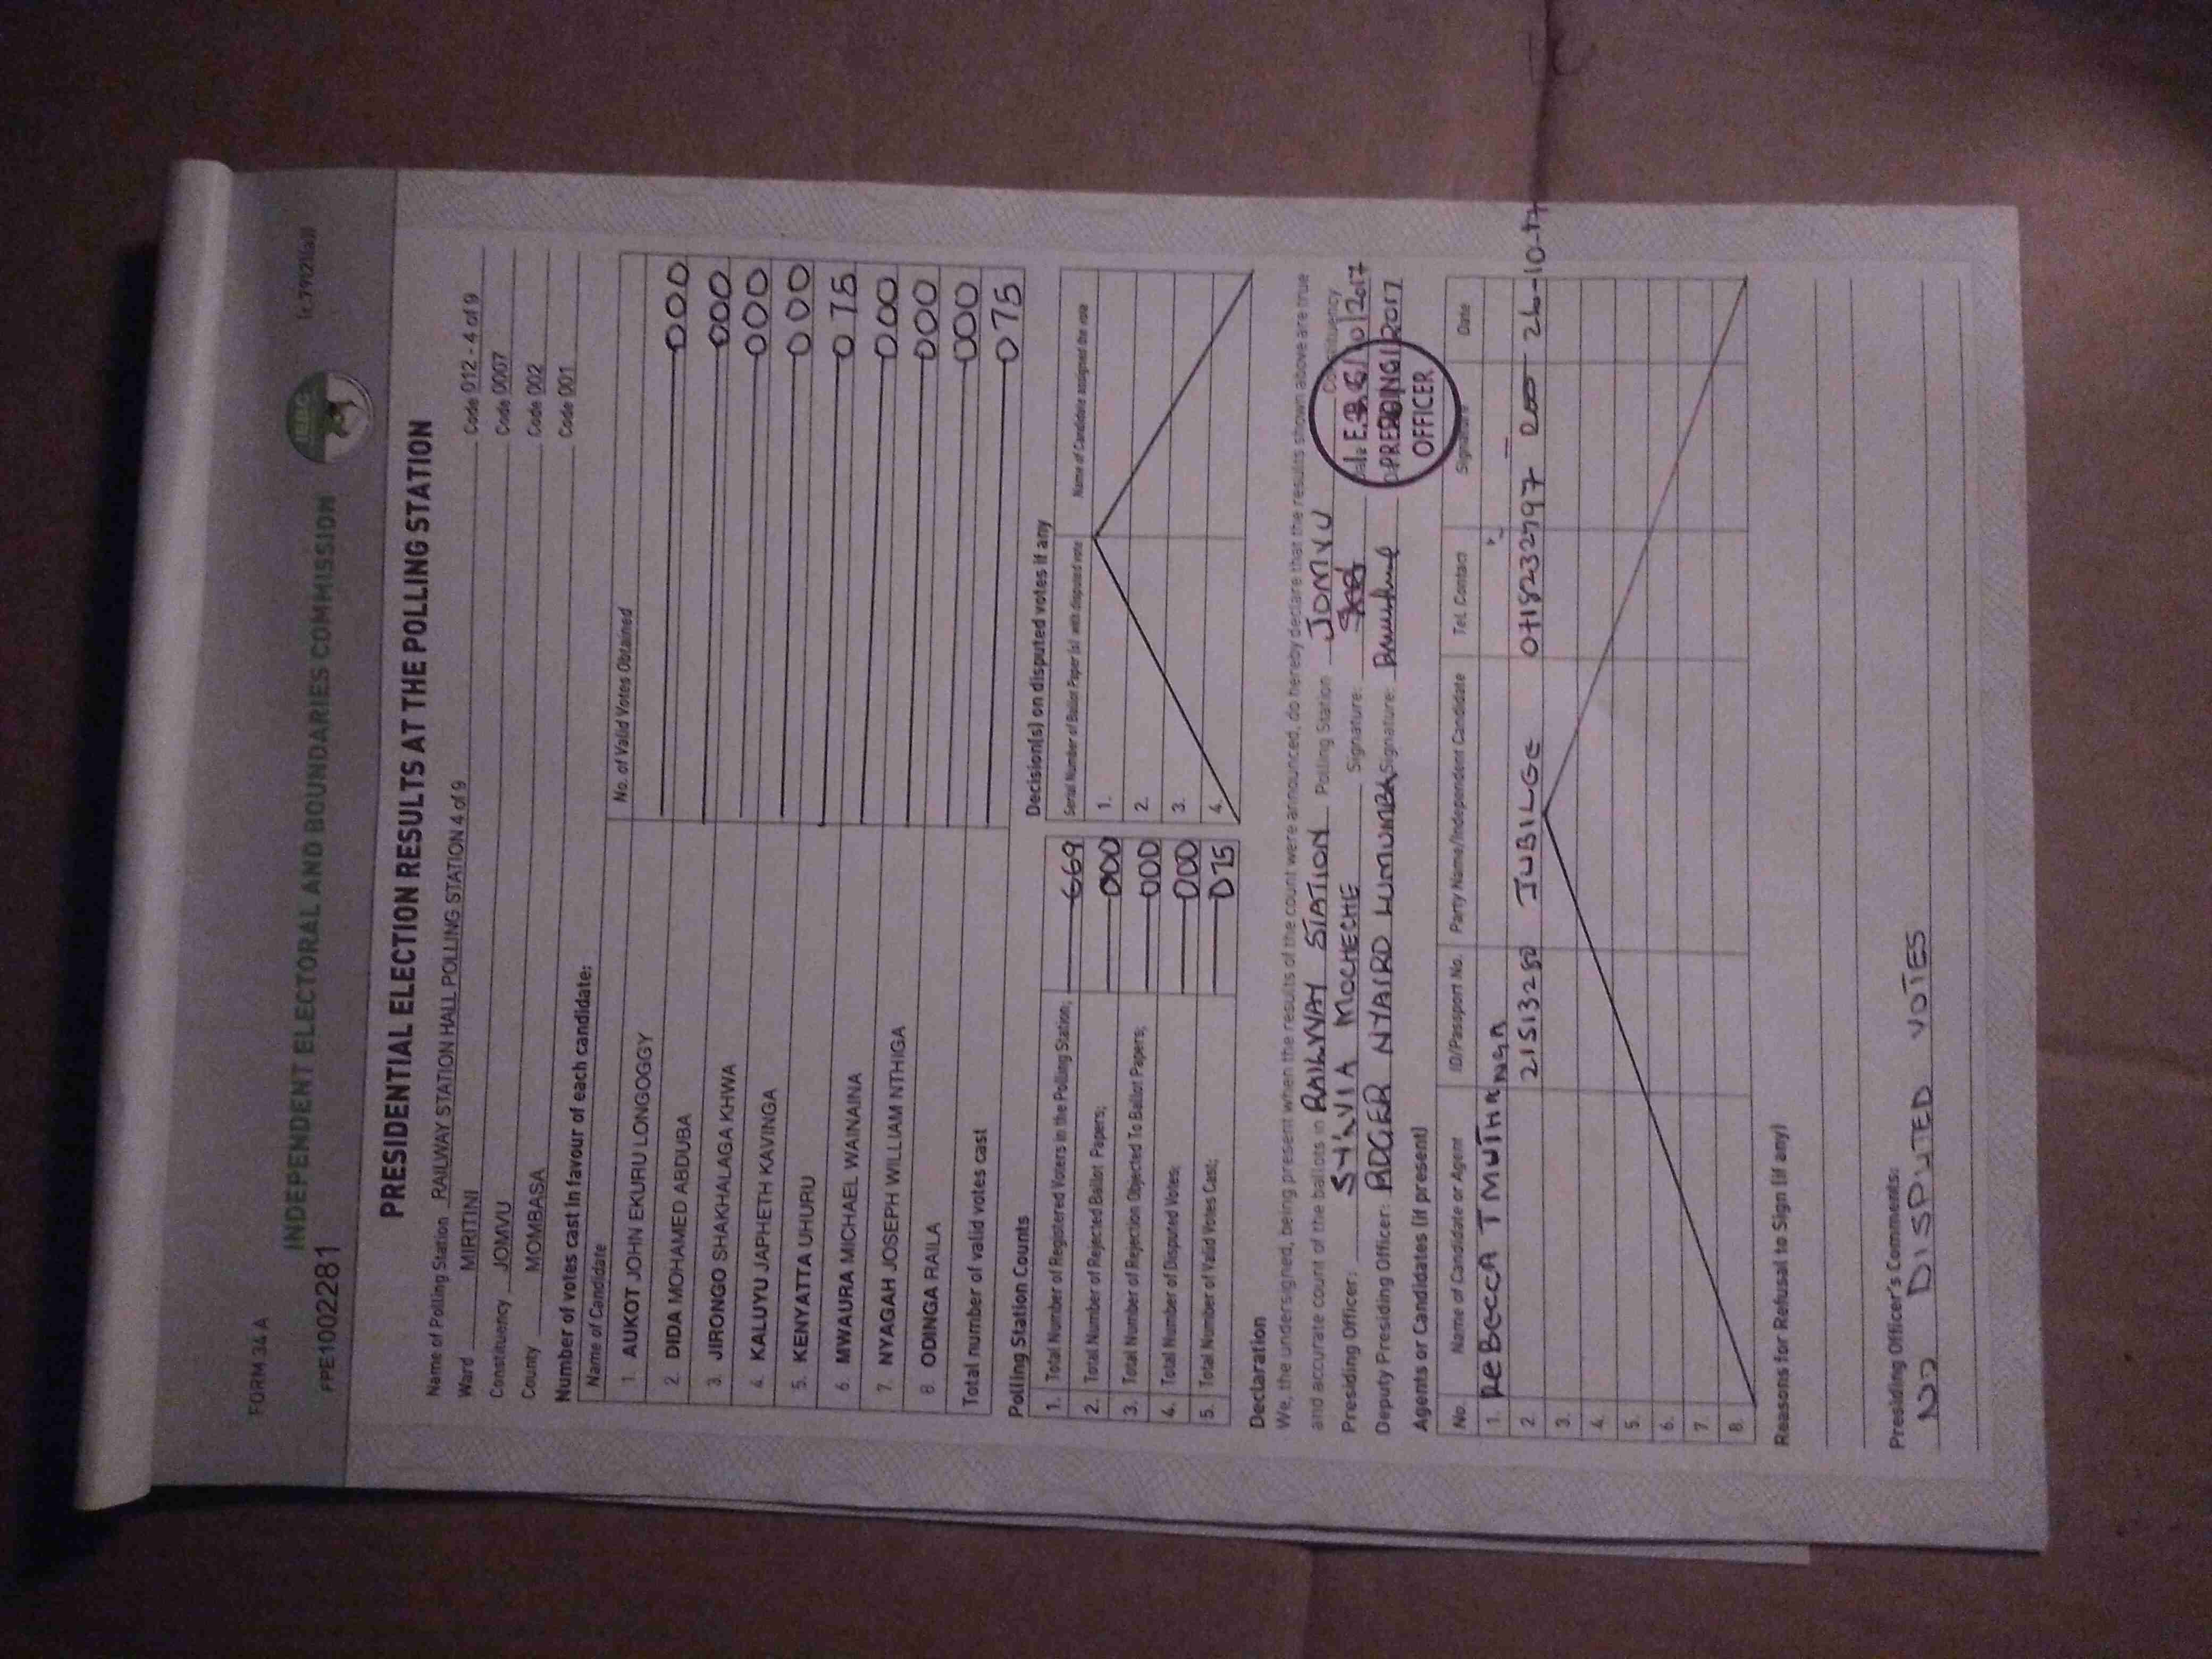 FORM 34 A
FPE1002281
INDEPENDENT ELECTORAL AND BOUNDARIES COMMISSION
IEBC
PRESIDENTIAL ELECTION RESULTS AT THE POLLING STATION
Name of Polling Station RAILWAY STATION HALL POLLING STATION 4 of 9 Code 012 - 4 of 9
Ward MIRITINI Code 0007
Constituency JOMVU Code 002
County MOMBASA Code 001
Number of votes cast in favour of each candidate:
Name of Candidate No. of Valid Votes Obtained
1. AUKOT JOHN EKURU LONGOGGY 000
2. DIDA MOHAMED ABDUBA 000
3. JIRONGO SHAKHALAGA KHWA 000
4. KALUYU JAPHETH KAVINGA 000
5. KENYATTA UHURU 075
6. MWAURA MICHAEL WAINAINA 000
7. NYAGAH JOSEPH WILLIAM NTHIGA 000
8. ODINGA RAILA 000
Total number of valid votes cast 075
Polling Station Counts
1. Total Number of Registered Voters in the Polling Station; 669
2. Total Number of Rejected Ballot Papers; 000
3. Total Number of Rejection Objected To Ballot Papers; 000
4. Total Number of Disputed Votes; 000
5. Total Number of Valid Votes Cast; 075
Decision(s) on disputed votes if any
Serial Number of Ballot Paper (s) with disputed vote Name of Candidate assigned the vote
1.
2.
3.
4.
Declaration
We, the undersigned, being present when the results of the count were announced, do hereby declare that the results shown above are true
and accurate count of the ballots in RAILWAY STATION Polling Station JOMVU Constituency
Presiding Officer: SYLVIA MOCHECHE Signature: Date 26/10/2017
Deputy Presiding Officer: RODGER NYAIRO LUMUMBA Signature:
PRESIDING
OFFICER
Agents or Candidates (if present)
No. Name of Candidate or Agent ID/Passport No. Party Name/Independent Candidate Tel. Contact Signature Date
1. REBECCA T MUTHANGA 21513280 JUBILEE 0718232797 26-10-17
2.
3.
4.
5.
6.
7.
8.
Reasons for Refusal to Sign (if any)
Presiding Officer's Comments:
NO DISPUTED VOTES